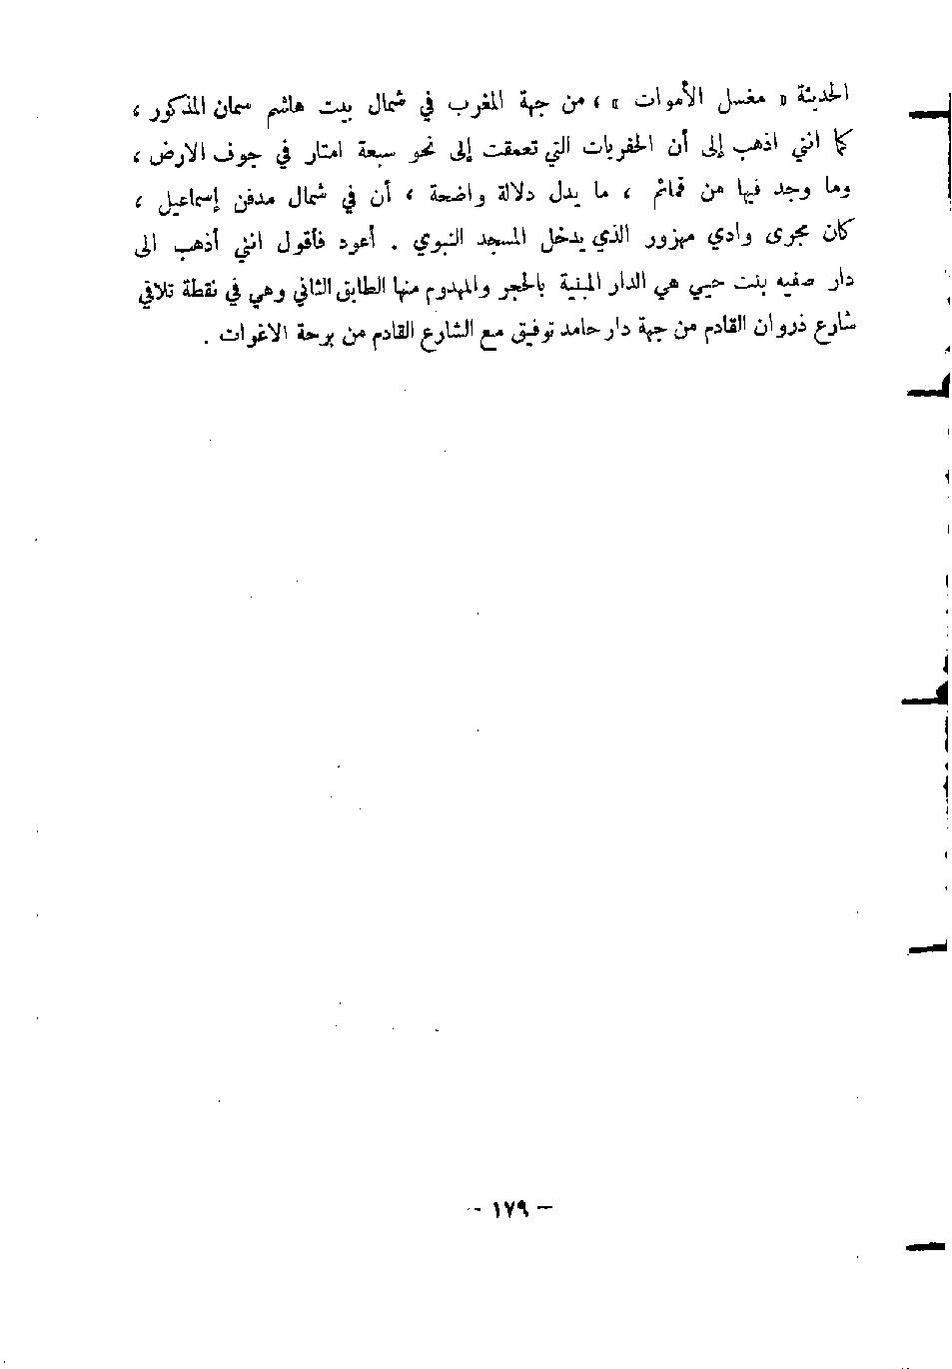 الحديثة « مغسل الأموات » ، من جهة المغرب في شمال بيت هاشم سمان المذكور ،
كما انني اذهب إلى أن الحفريات التي تعمقت إلى نحو سبعة امتار في جوف الارض ،
وما وجد فيها من قمائم ، ما يدل دلالة واضحة ، أن في شمال مدفن إسماعيل ،
كان مجرى وادي مهزور الذي يدخل المسجد النبوي . أعود فأقول انني أذهب الى
دار صفيه بنت حيي هي الدار المبنية بالحجر والمهدوم منها الطابق الثاني وهي في نقطة تلاقي
شارع ذروان القادم من جهة دار حامد توفيق مع الشارع القادم من برحة الاغوات .
- ١٧٩ -